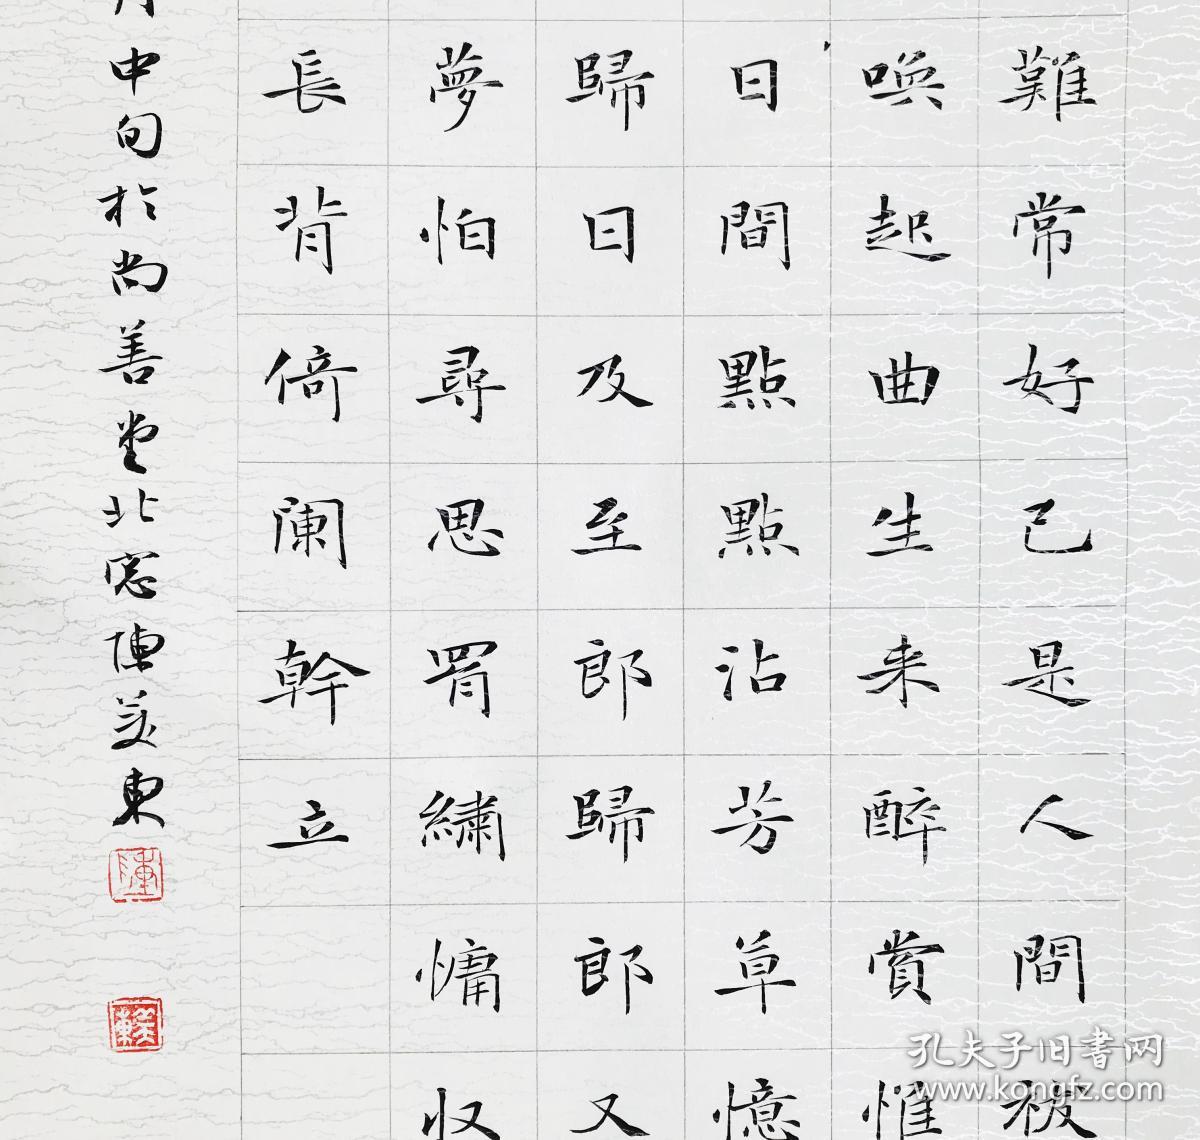 難常好已是人間被
喚起曲生来醉賞惟
日間點點沾芳草憶
歸日及至郎歸郎又
夢怕尋思罥繡慵収
長背倚闌幹立
月中旬於尚善堂北窓陳美東
陳
孔夫子旧書网
www.kongfz.com